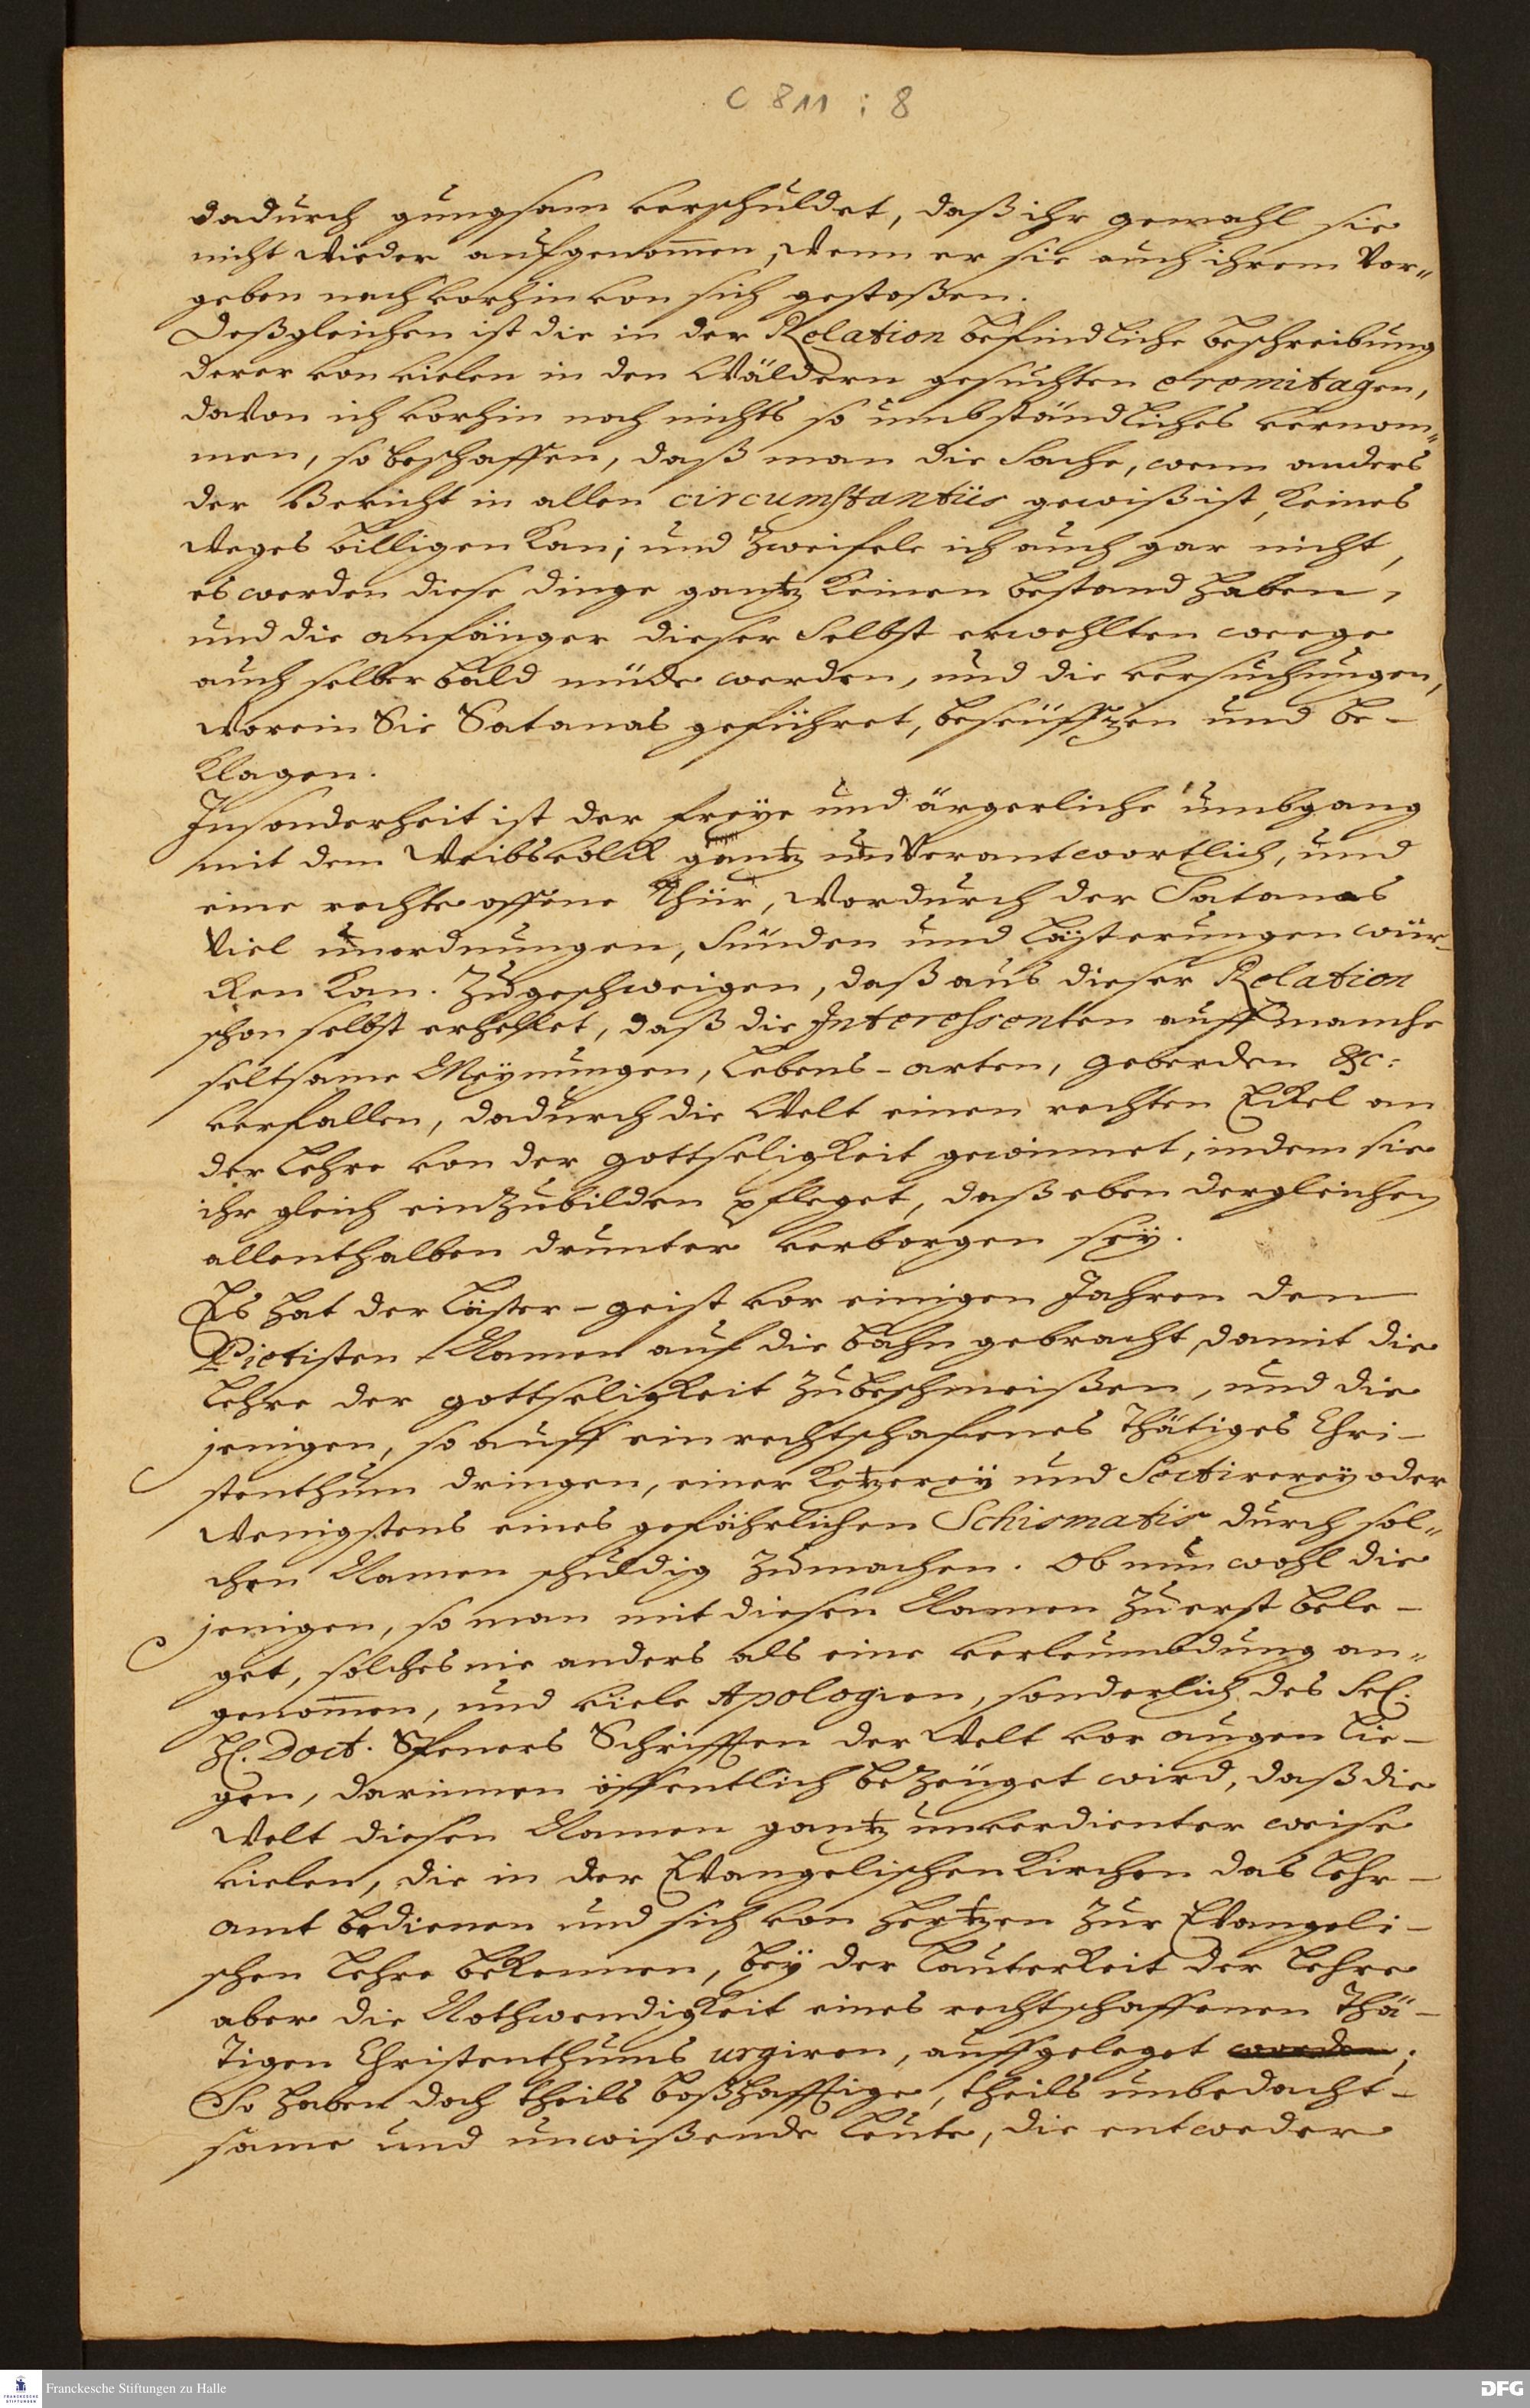 C 811 : 8
dadurch gungsam verschuldet, daß ihr gemahl sie
nicht wieder aufgenom̄en, wenn er sie auch ihrem Vor„
geben nach vorhin von sich gestoßen.
Deßgleichen ist die in der Relation befindliche beschreibung
derer von vielen in den Wäldern gesuchten eremitagen,
davon ich vorhin noch nichts so umbständliches vernom„
men, so beschaffen, daß man die Sache, wenn anders
der Bericht in allen circumstantiis gewiß ist, keines
weges billigen kan; und zweifele ich auch gar nicht,
es werden diese dinge gantz keinen bestand haben,
und die anfänger dieser Selbst erwehlten weege
auch selber bald müde werden, und die versuchungen,
worein Sie Satanas geführet, beseüfftzen und be-
klagen.
Insonderheit ist der freye und ärgerliche umbgang
mit dem Weibsvolck gantz unverantwortlich, und
eine rechte offene Thür, wordurch der Satanas
viel unordnungen, Sünden und Lästerungen wür-
cken kan. Zugeschweigen, daß aus dieser Relation
schon selbst erhellet, daß die Interessenten auff manche
seltsame Meynungen, Lebens-arten, geberden &c:
verfallen, dadurch die Welt einen rechten Eckel an
der Lehre von der gottseligkeit gewinnet, indem sie
ihr gleich einzubilden pfleget, daß eben dergleichen
allenthalben drunter verborgen sey.
Es hat der Läster-geist vor einigen Jahren den
Pietisten Namen auf die bahn gebracht, damit die
Lehre der gottseligkeit zubeschmeißen, und die
jenigen, so auff ein rechtschafenes thätiges Chri-
stenthum dringen, einer Ketzerey und Sectirerey oder
wenigstens eines gefährlichen Schismatis durch sol„
chen Namen schuldig zumachen. Ob nun wohl die
jenigen, so man mit diesen Namen zuerst bele-
get, solches nie anders als eine verleumbdung an„
genom̄en, und viele Apologien, sonderlich des Sel.
H. Doct. Speners Schrifften der Welt vor augen lie-
gen, darinnen öffentlich bezeüget wird, daß die
Welt diesen Namen gantz unverdienter weise
vielen, die in der Evangelischen Kirchen das Lehr-
amt bedienen und sich von Hertzen zur Evangeli-
schen Lehre bekennen, bey der Lauterkeit der Lehre
aber die Nothwendigkeit eines rechtschaffenen Thä-
tigen Christenthums urgiren, auffgeleget worden;
So haben doch theils boßhafftige, theils unbedacht-
same und unwißende Leute, die entweder
Franckesche Stiftungen zu Halle
FRANCKESCHE STIFTUNGEN
DFG